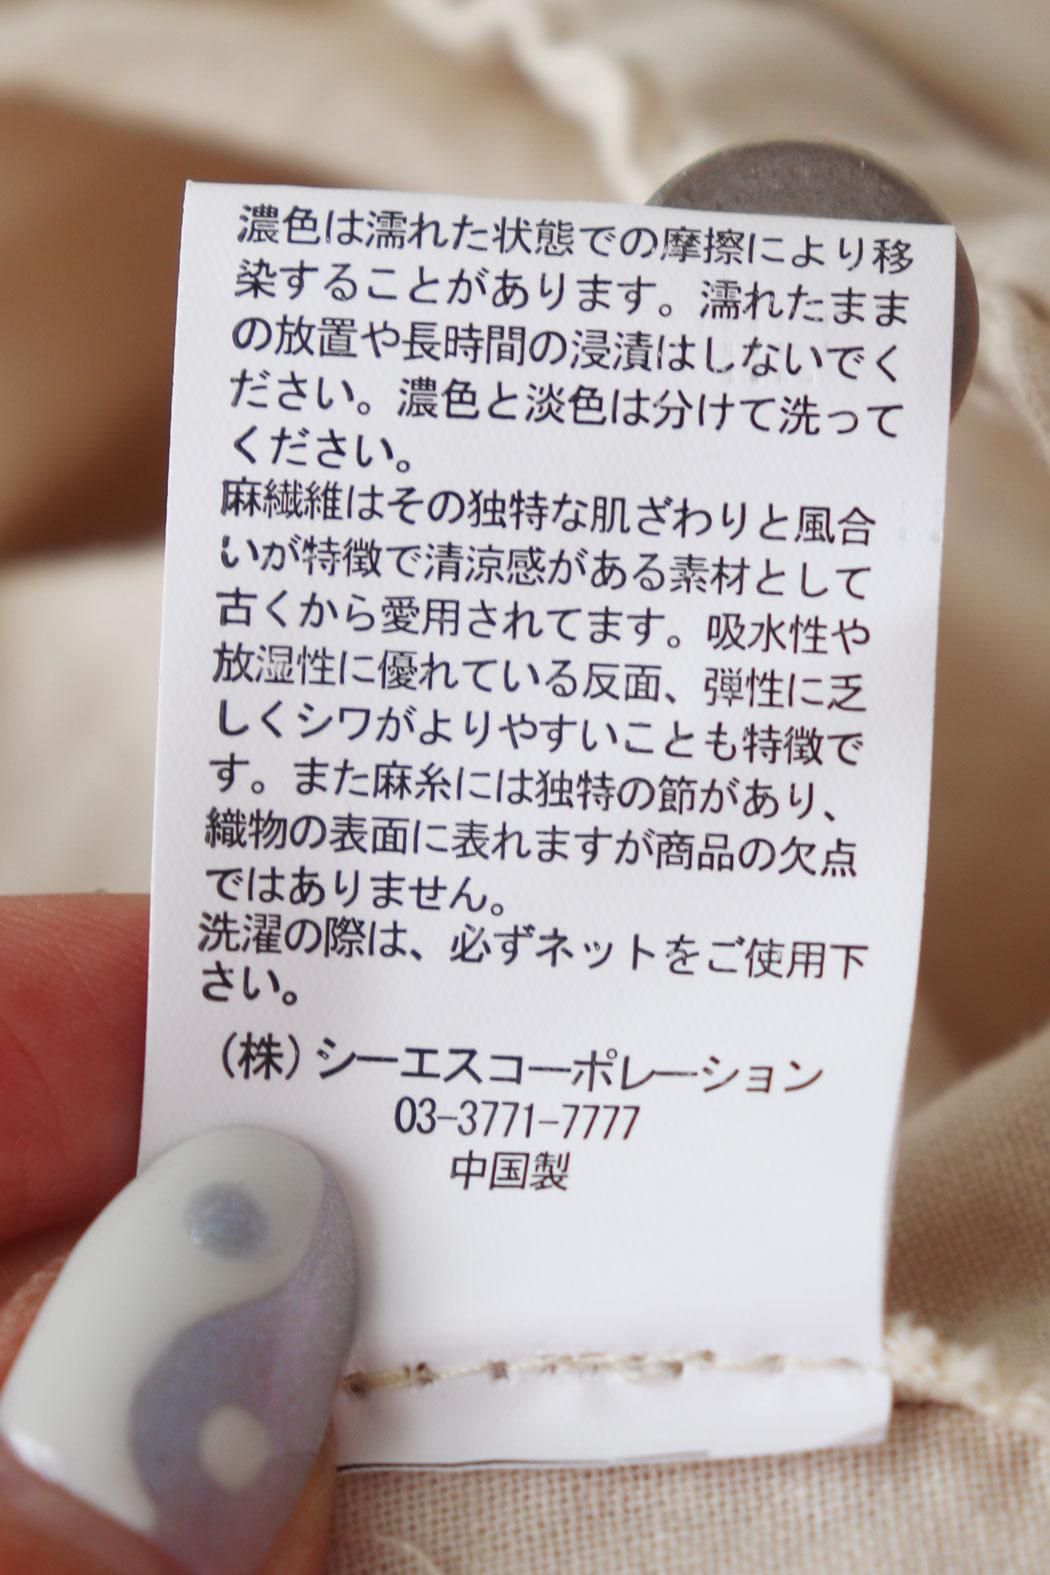 濃色は濡れた状態での摩擦により移
染することがあります。濡れたまま
の放置や長時間の浸漬はしないでく
ださい。濃色と淡色は分けて洗って
ください。
麻繊維はその独特な肌ざわりと風合
いが特徴で清涼感がある素材として
古くから愛用されてます。吸水性や
放湿性に優れている反面、弾性に乏
しくシワがよりやすいことも特徴で
す。また麻糸には独特の節があり、
織物の表面に表れますが商品の欠点
ではありません。
洗濯の際は、必ずネットをご使用下
さい。
(株)シーエスコーポレーション
03-3771-7777
中国製